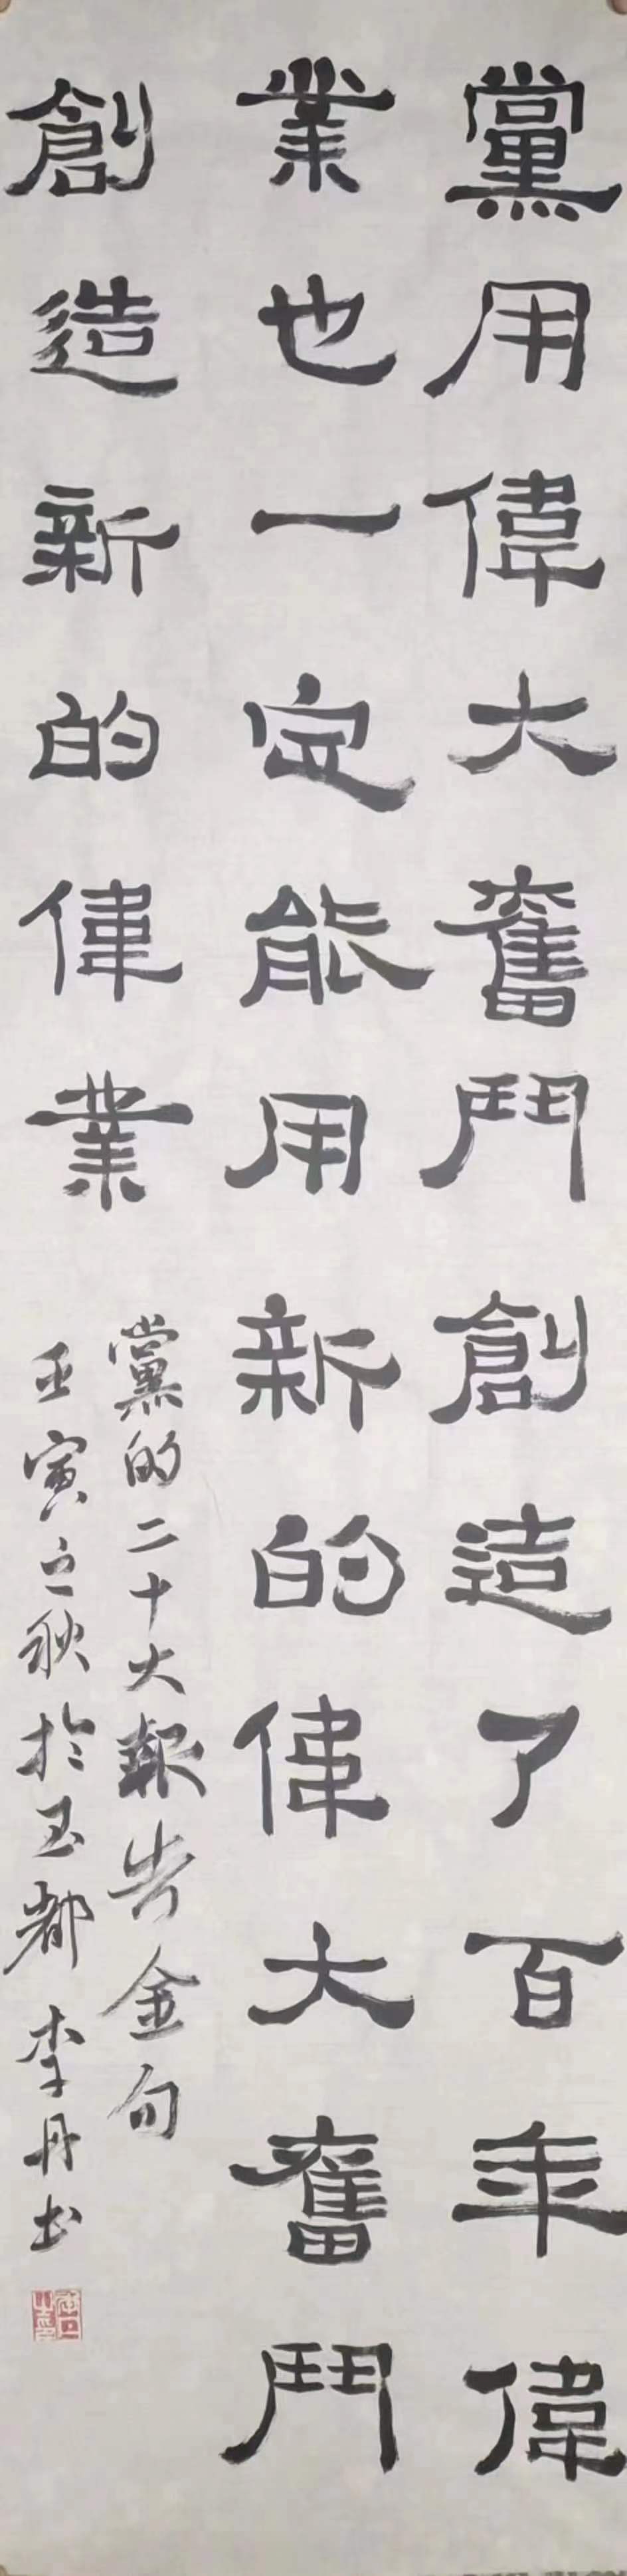 黨用偉大奮鬥創造了百年偉
業也一定能用新的偉大奮鬥
創造新的偉業
黨的二十大報告金句
壬寅之秋於玉都李丹书